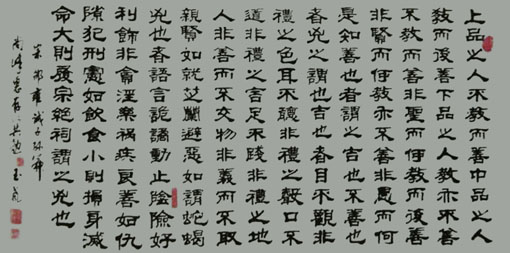 上品之人不教而善中品之人
教而後善下品之人教亦不善
不教而善非聖而何教而後善
非賢而何教亦不善非愚而何
是知善也者謂之吉也不善也
者兇之謂也吉也者目不觀非
禮之色耳不聽非禮之聲口不
道非禮之言足不踐非禮之地
人非善而不交物非義而不取
親賢如就芝蘭避惡如謂蛇蝎
兇也者語言詭譎動止陰險好
利飾非貪淫樂禍疾良善如仇
隙犯刑憲如飲食小則損身滅
命大則覆宗絕祠謂之兇也
宋邵雍誡子孫